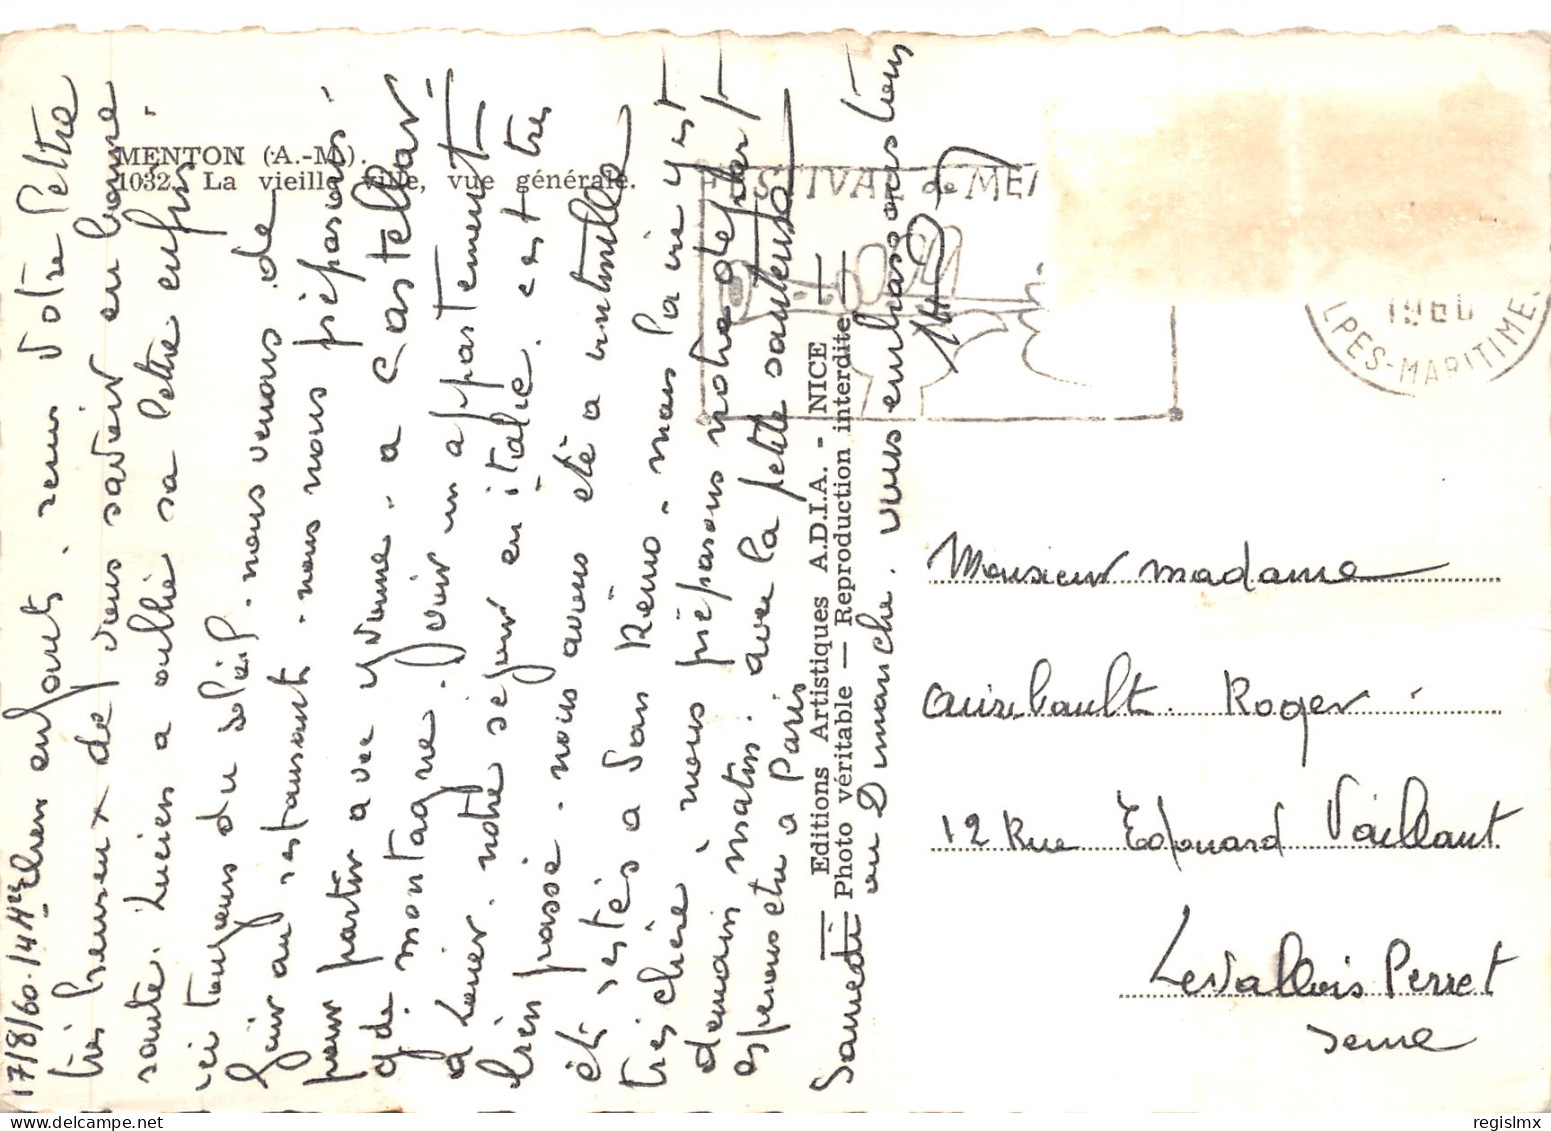 MENTON (A.-M.).
1032. La vieille ville, vue générale.
17/8/60. 14H Chers enfants. reçu votre lettre
très heureux de vous savoir en bonne
santé. Lucien a oublié sa lettre enfin
ici toujours du soleil. nous venons de
au restaurant. nous nous préparons.
pour partir avec Yvonne. a Castellar.
de montagne. voir un appartement
a louer. notre séjour en italie. est très
bien passé. nous avons été a vintimille
été restés a San Rémo. mais la vie y est
très chère. nous préparons notre départ
demain matin. avec la petite
espérons etre a Paris
Samedi ou Dimanche. vous embrassons tous
Editions Artistiques A.D.I.A. - NICE
Photo véritable — Reproduction interdite
FESTIVAL de MEN
1960
LPES-MARITIMES
Monsieur madame
Roger
12 Rue Edouard Vaillant
Levallois Perret
Seine
regislmx